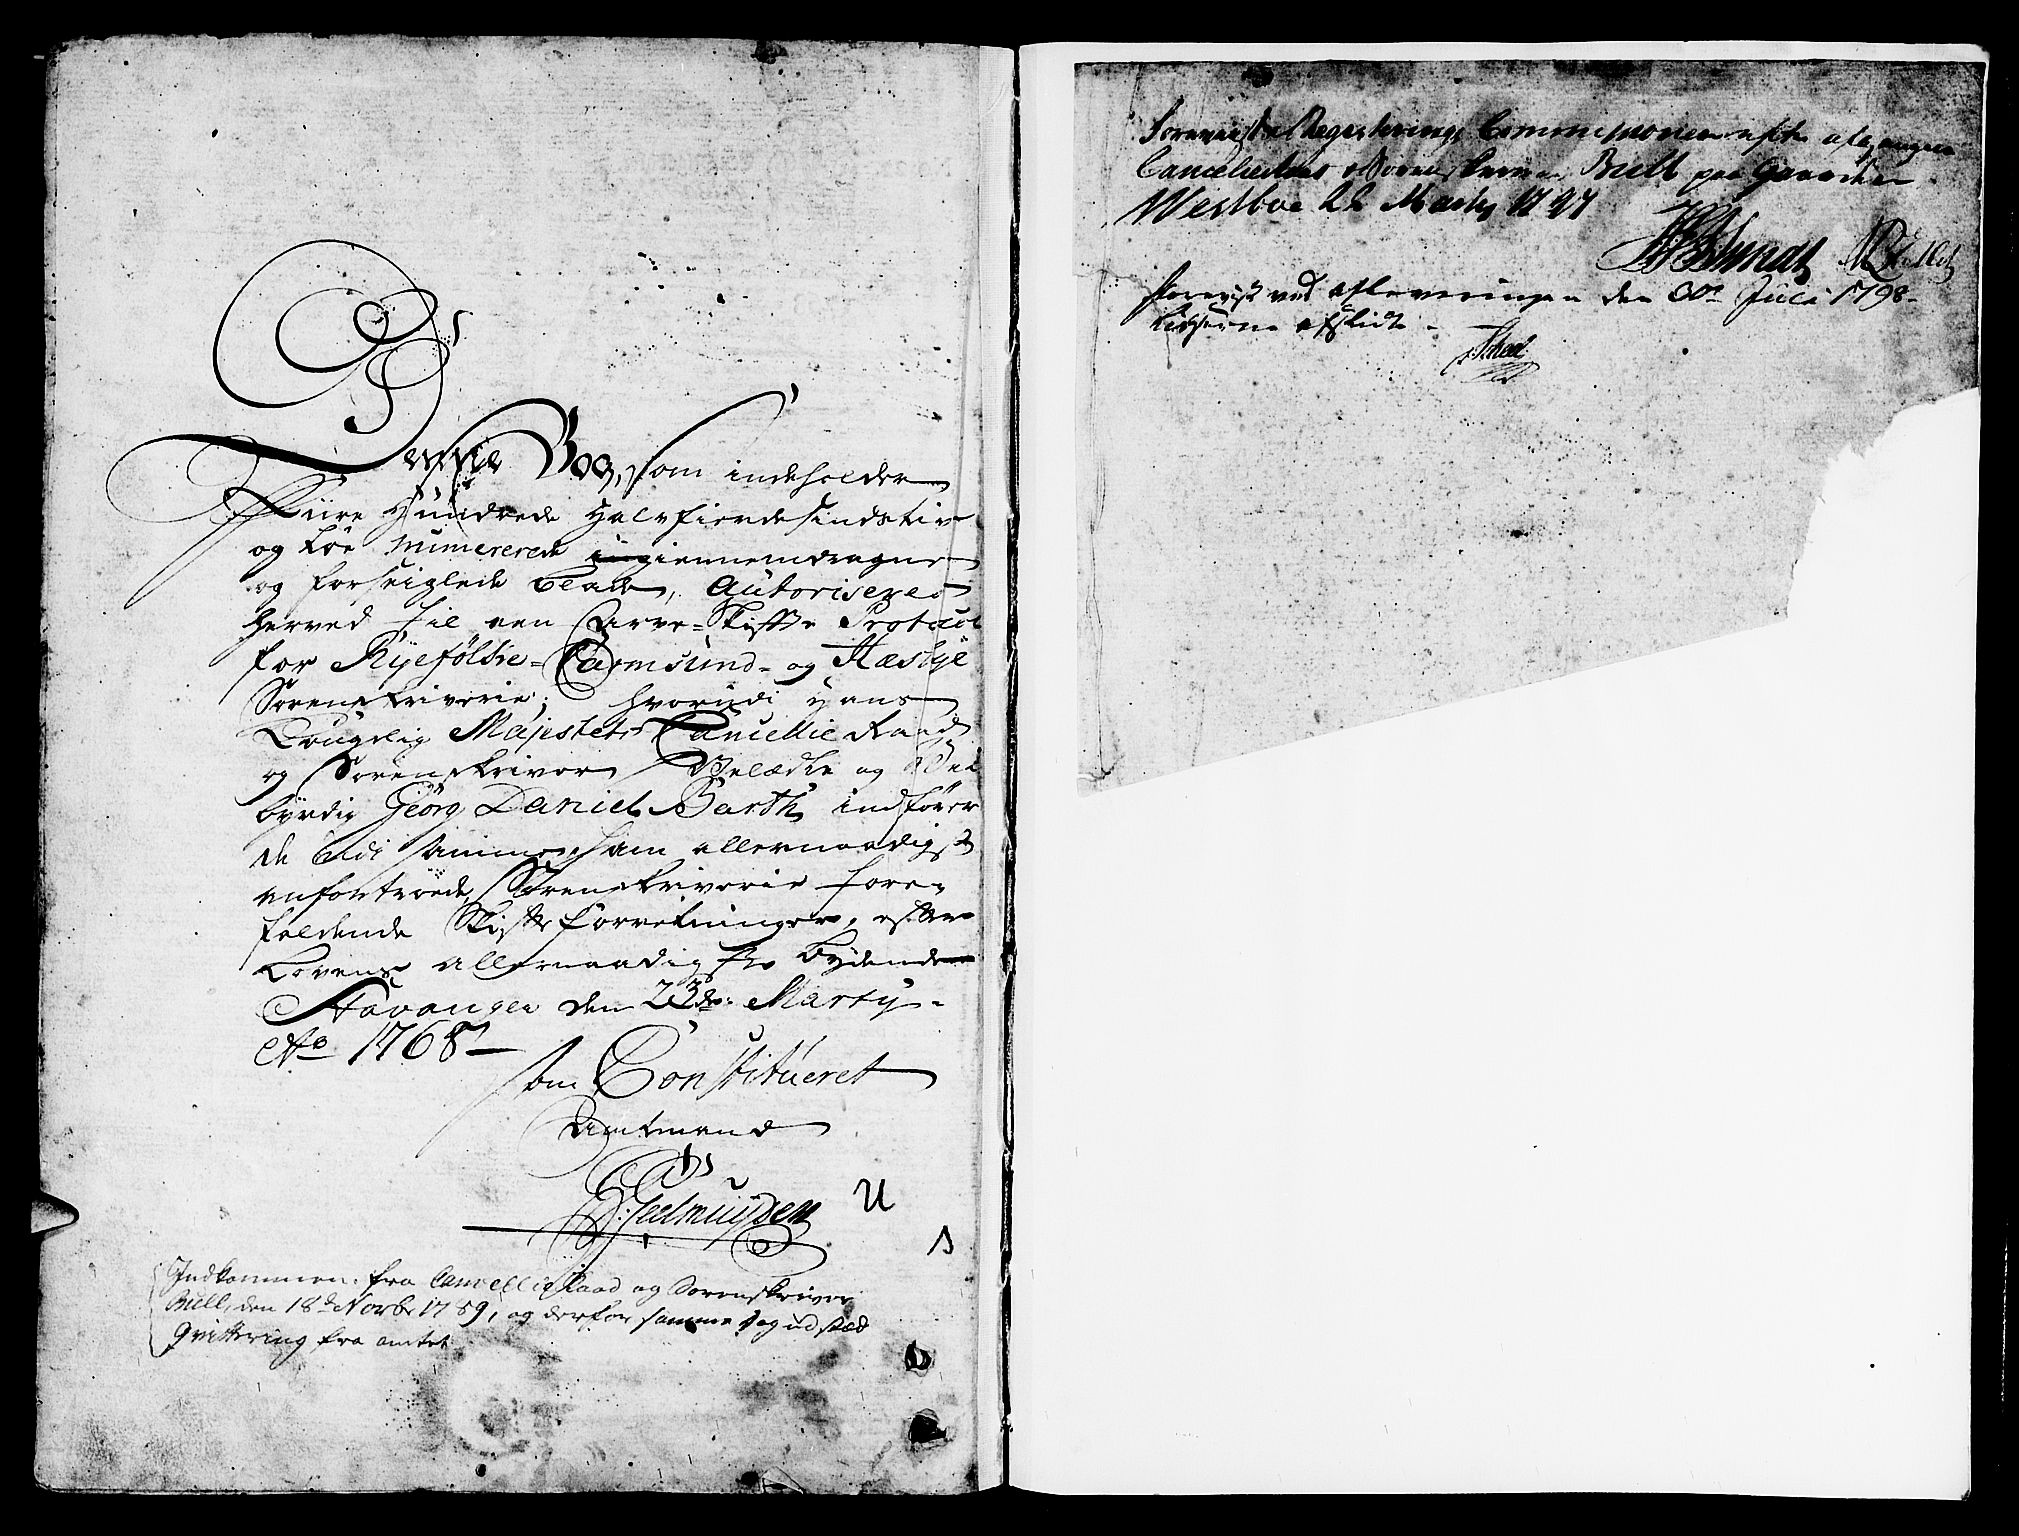 Denne Bog, som indeholder
Fiire Hundrede Halvfierdesindstive
og toe numererede igiennemdragne
og forseiglede blade, Autoriseres
herved til een Arve-Skifte Protocol
for Ryefølke- Carmsund- og Hæsbye
Sorenskriverie; hvorudi Hans
Kongelig Majestets Cancellie Raad
og Sorenskriver Velædle og Vel
byrdig Georg Daniel Barth indfører
de udi samme ham allernaadigst
anfortroede Sorenskriverie fore-
faldende Skifteforretninger, efter
Lovens allernaadigste bydende
Stavanger den 23de Marty
Ao 1768
som Constitueret
Amtmand
Gelmuyden
Indkommen fra Cancellieraad og Sorenskriver
Bull, den 18de Novbr 1789, og derfor samme dag udsted
Qvittering fra amtet
U
Foreviist Registrerings Commissionen efter afgangne
Cancelieraad Sorenskriver Bull paa Gaarden
Westboe 22 Marty 1797
Foreviist ved afleveringen den 30te Julii 1798